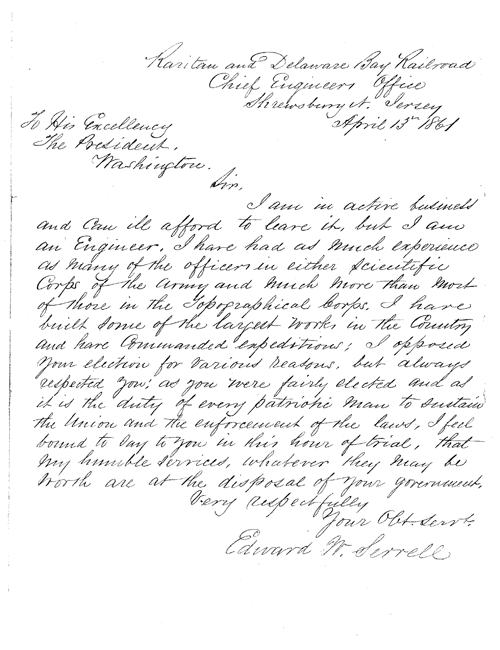 Raritan and Delaware Bay Railroad
Chief Engineers Office
Shrewsbury N. Jersey
April 13th 1861
To His Excellency
The President.
Washington.
Sir,
I am in active business
and can ill afford to leave it, but I am
an Engineer. I have had as much experience
as many of the officers in either Scientific
Corps of the Army and much more than most
of those in the Topographical Corps. I have
built some of the largest works in the Country
and have Commanded expeditions; I opposed
your election for various reasons, but always
respected you; as you were fairly elected and as
it is the duty of every patriotic man to sustain
the Union and the enforcement of the laws, I feel
bound to say to you in this hour of trial, that
my humble services, whatever they may be
worth are at the disposal of your government.
Very respectfully
Your Obt. Servt.
Edward W. Serrell